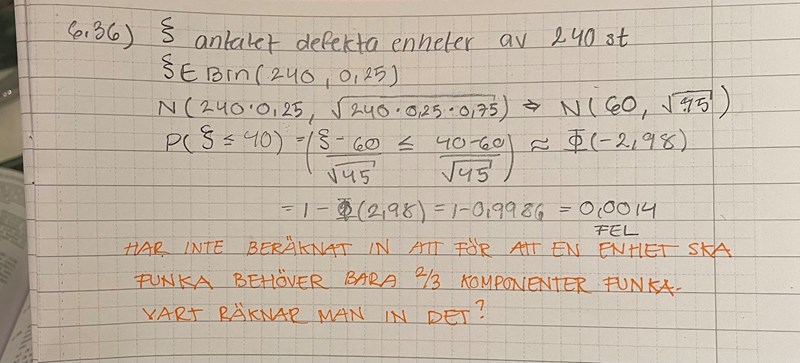 6.36) ξ antalet defekta enheter av 240 st
ξ ∈ Bin(240, 0,25)
N(240·0,25, √240·0,25·0,75) ⇒ N(60, √45)
P(ξ ≤ 40) = (ξ-60/√45 ≤ 40-60/√45) ≈ Φ(-2,98)
= 1 - Φ(2,98) = 1-0,9986 = 0,0014
FEL
HAR INTE BERÄKNAT IN ATT FÖR ATT EN ENHET SKA
FUNKA BEHÖVER BARA 2/3 KOMPONENTER FUNKA.
VART RÄKNAR MAN IN DET?